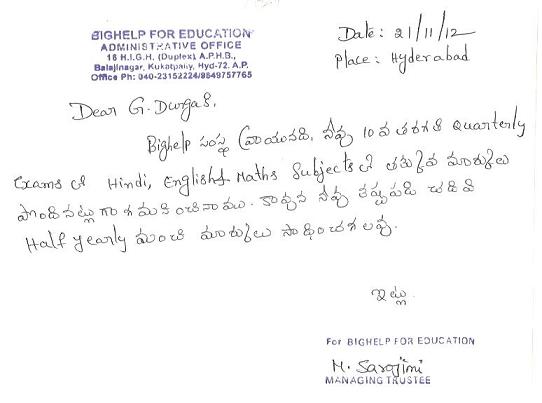 BIGHELP FOR EDUCATION
ADMINISTRATIVE OFFICE
16 H.I.G.H. (Duplex) A.P.H.B.,
Balajinagar, Kukatpally, Hyd-72. A.P.
Office Ph: 040-23152224/8649757765
Date: 21/11/12
Place: Hyderabad
Dear G. Durga S.
Bighelp సంస్థ వ్రాయునది, నీవు 10 వ తరగతి Quarterly
Exams లో Hindi, English & Maths Subjects లో తక్కువ మార్కులు
పొందినట్లుగా గమనించినాము. కావున నీవు కష్టపడి చదివి
Half yearly మంచి మార్కులు సాధించగలవు.
ఇట్లు
For BIGHELP FOR EDUCATION
M. Sarojini
MANAGING TRUSTEE